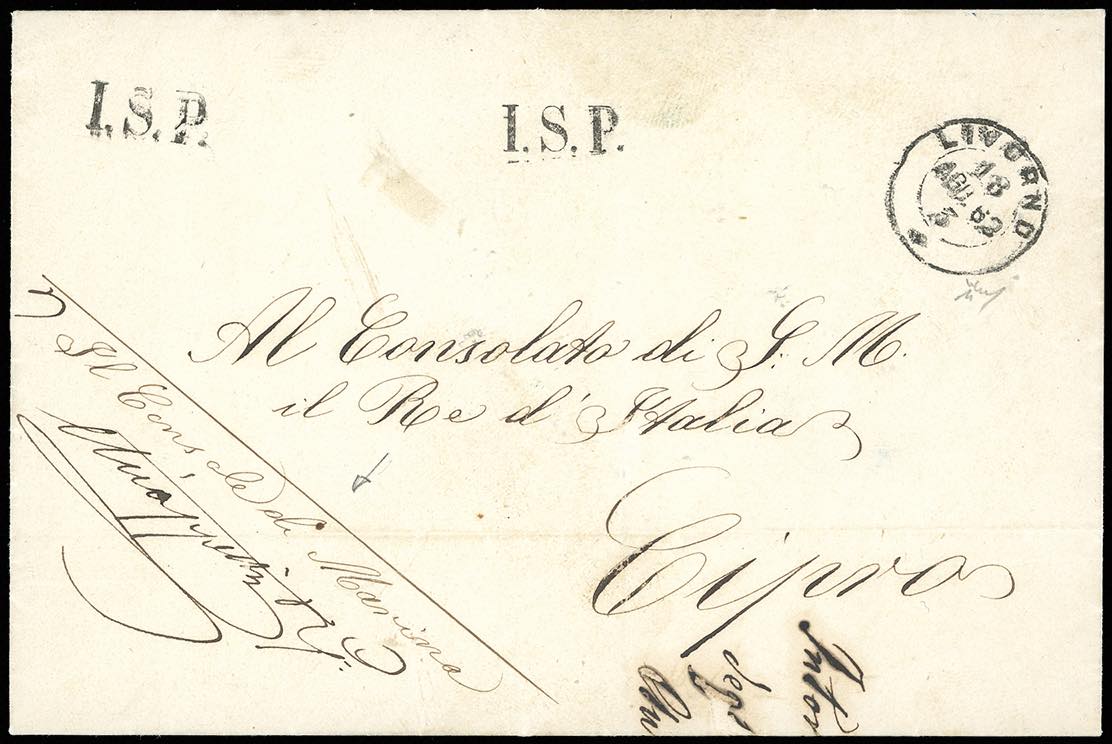 I.S.P.
I.S.P.
LIVORNO
18
AGO. 62
Al Consolato di S. M.
il Re d'Italia
Cipro
Il Console di Marina